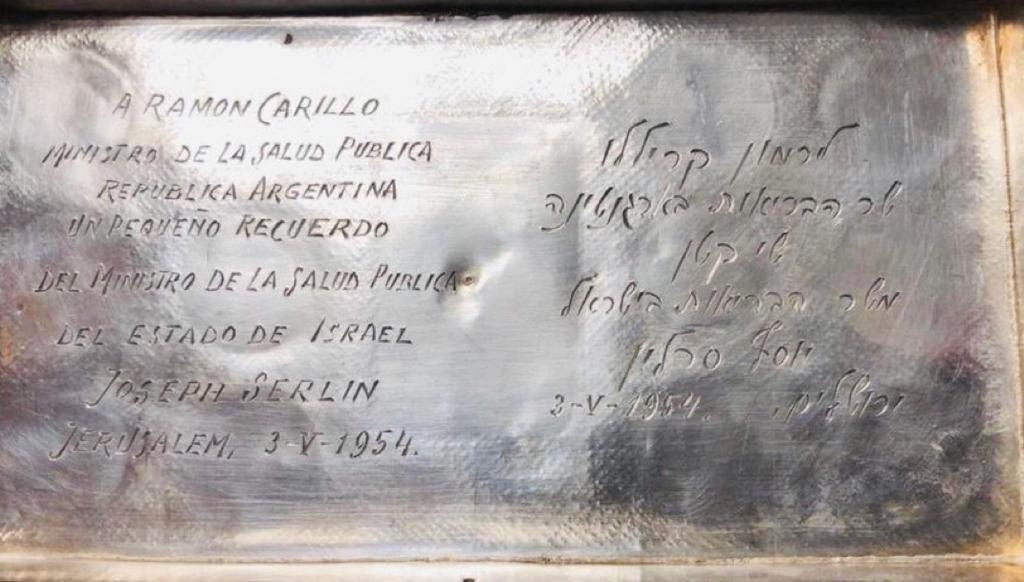 A RAMON CARILLO
MINISTRO DE LA SALUD PUBLICA
REPUBLICA ARGENTINA
UN PEQUEÑO RECUERDO
DEL MINISTRO DE LA SALUD PUBLICA
DEL ESTADO DE ISRAEL
JOSEPH SERLIN
JERUSALEM, 3-V-1954.
לרמון קרילו
שר הבריאות בארגנטינה
שי קטן
משר הבריאות בישראל
יוסף סרלין
ירושלים, 3-V-1954.